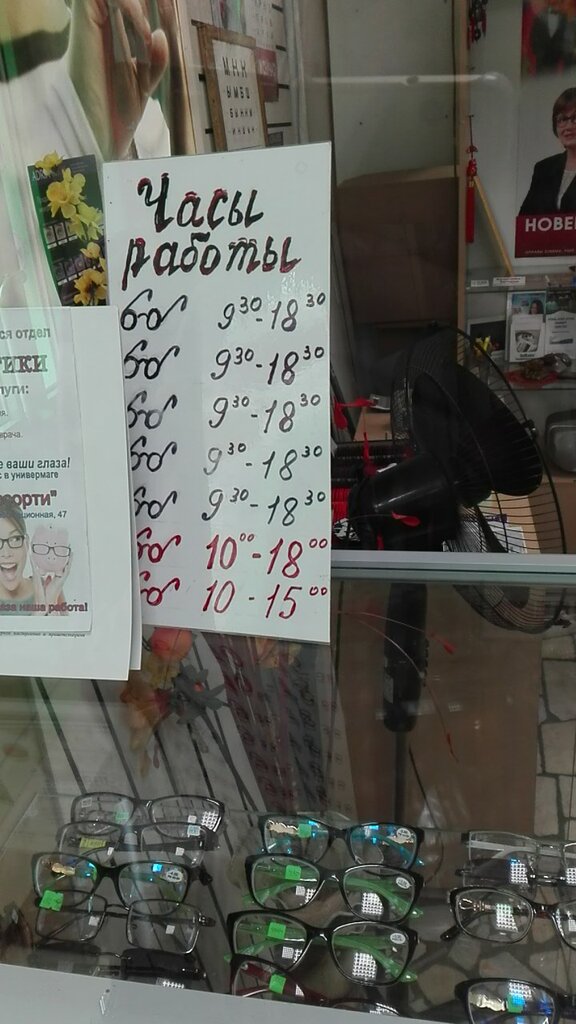 Часы
работы
9³⁰-18³⁰
9³⁰-18³⁰
9³⁰-18³⁰
9³⁰-18³⁰
9³⁰-18³⁰
10⁰⁰-18⁰⁰
10-15⁰⁰
ся отдел
тики
луги:
врача.
е ваши глаза!
с в универмаге
орти"
ционная, 47
аза наша работа!
НОВЕ